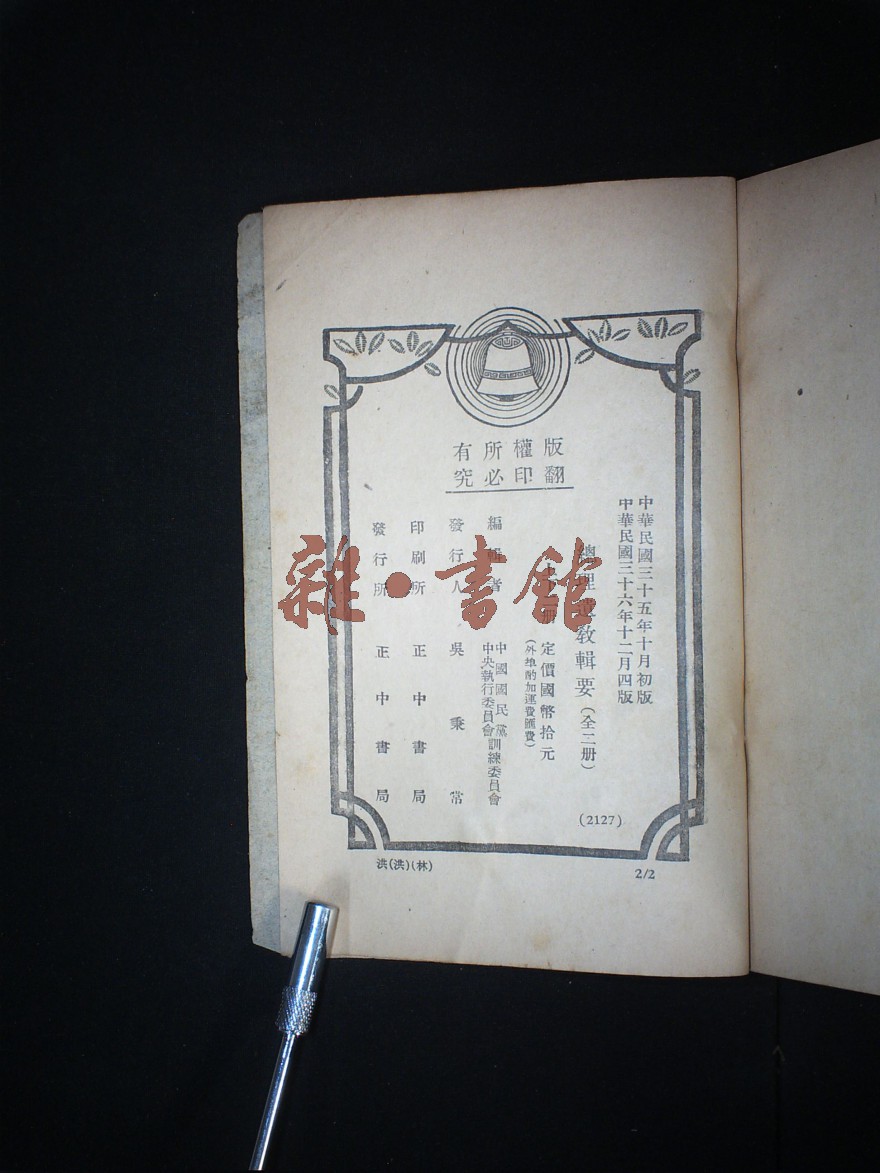 版權所有
翻印必究
中華民國三十五年十月初版
中華民國三十六年十二月四版
總理遺教輯要(全三册)
(2127)
册 定價國幣拾元
(外埠酌加運費匯費)
編輯者 中國國民黨中央執行委員會訓練委員會
發行人 吳秉常
印刷所 正中書局
發行所 正中書局
洪(洪)(林)
2/2
雜·書館